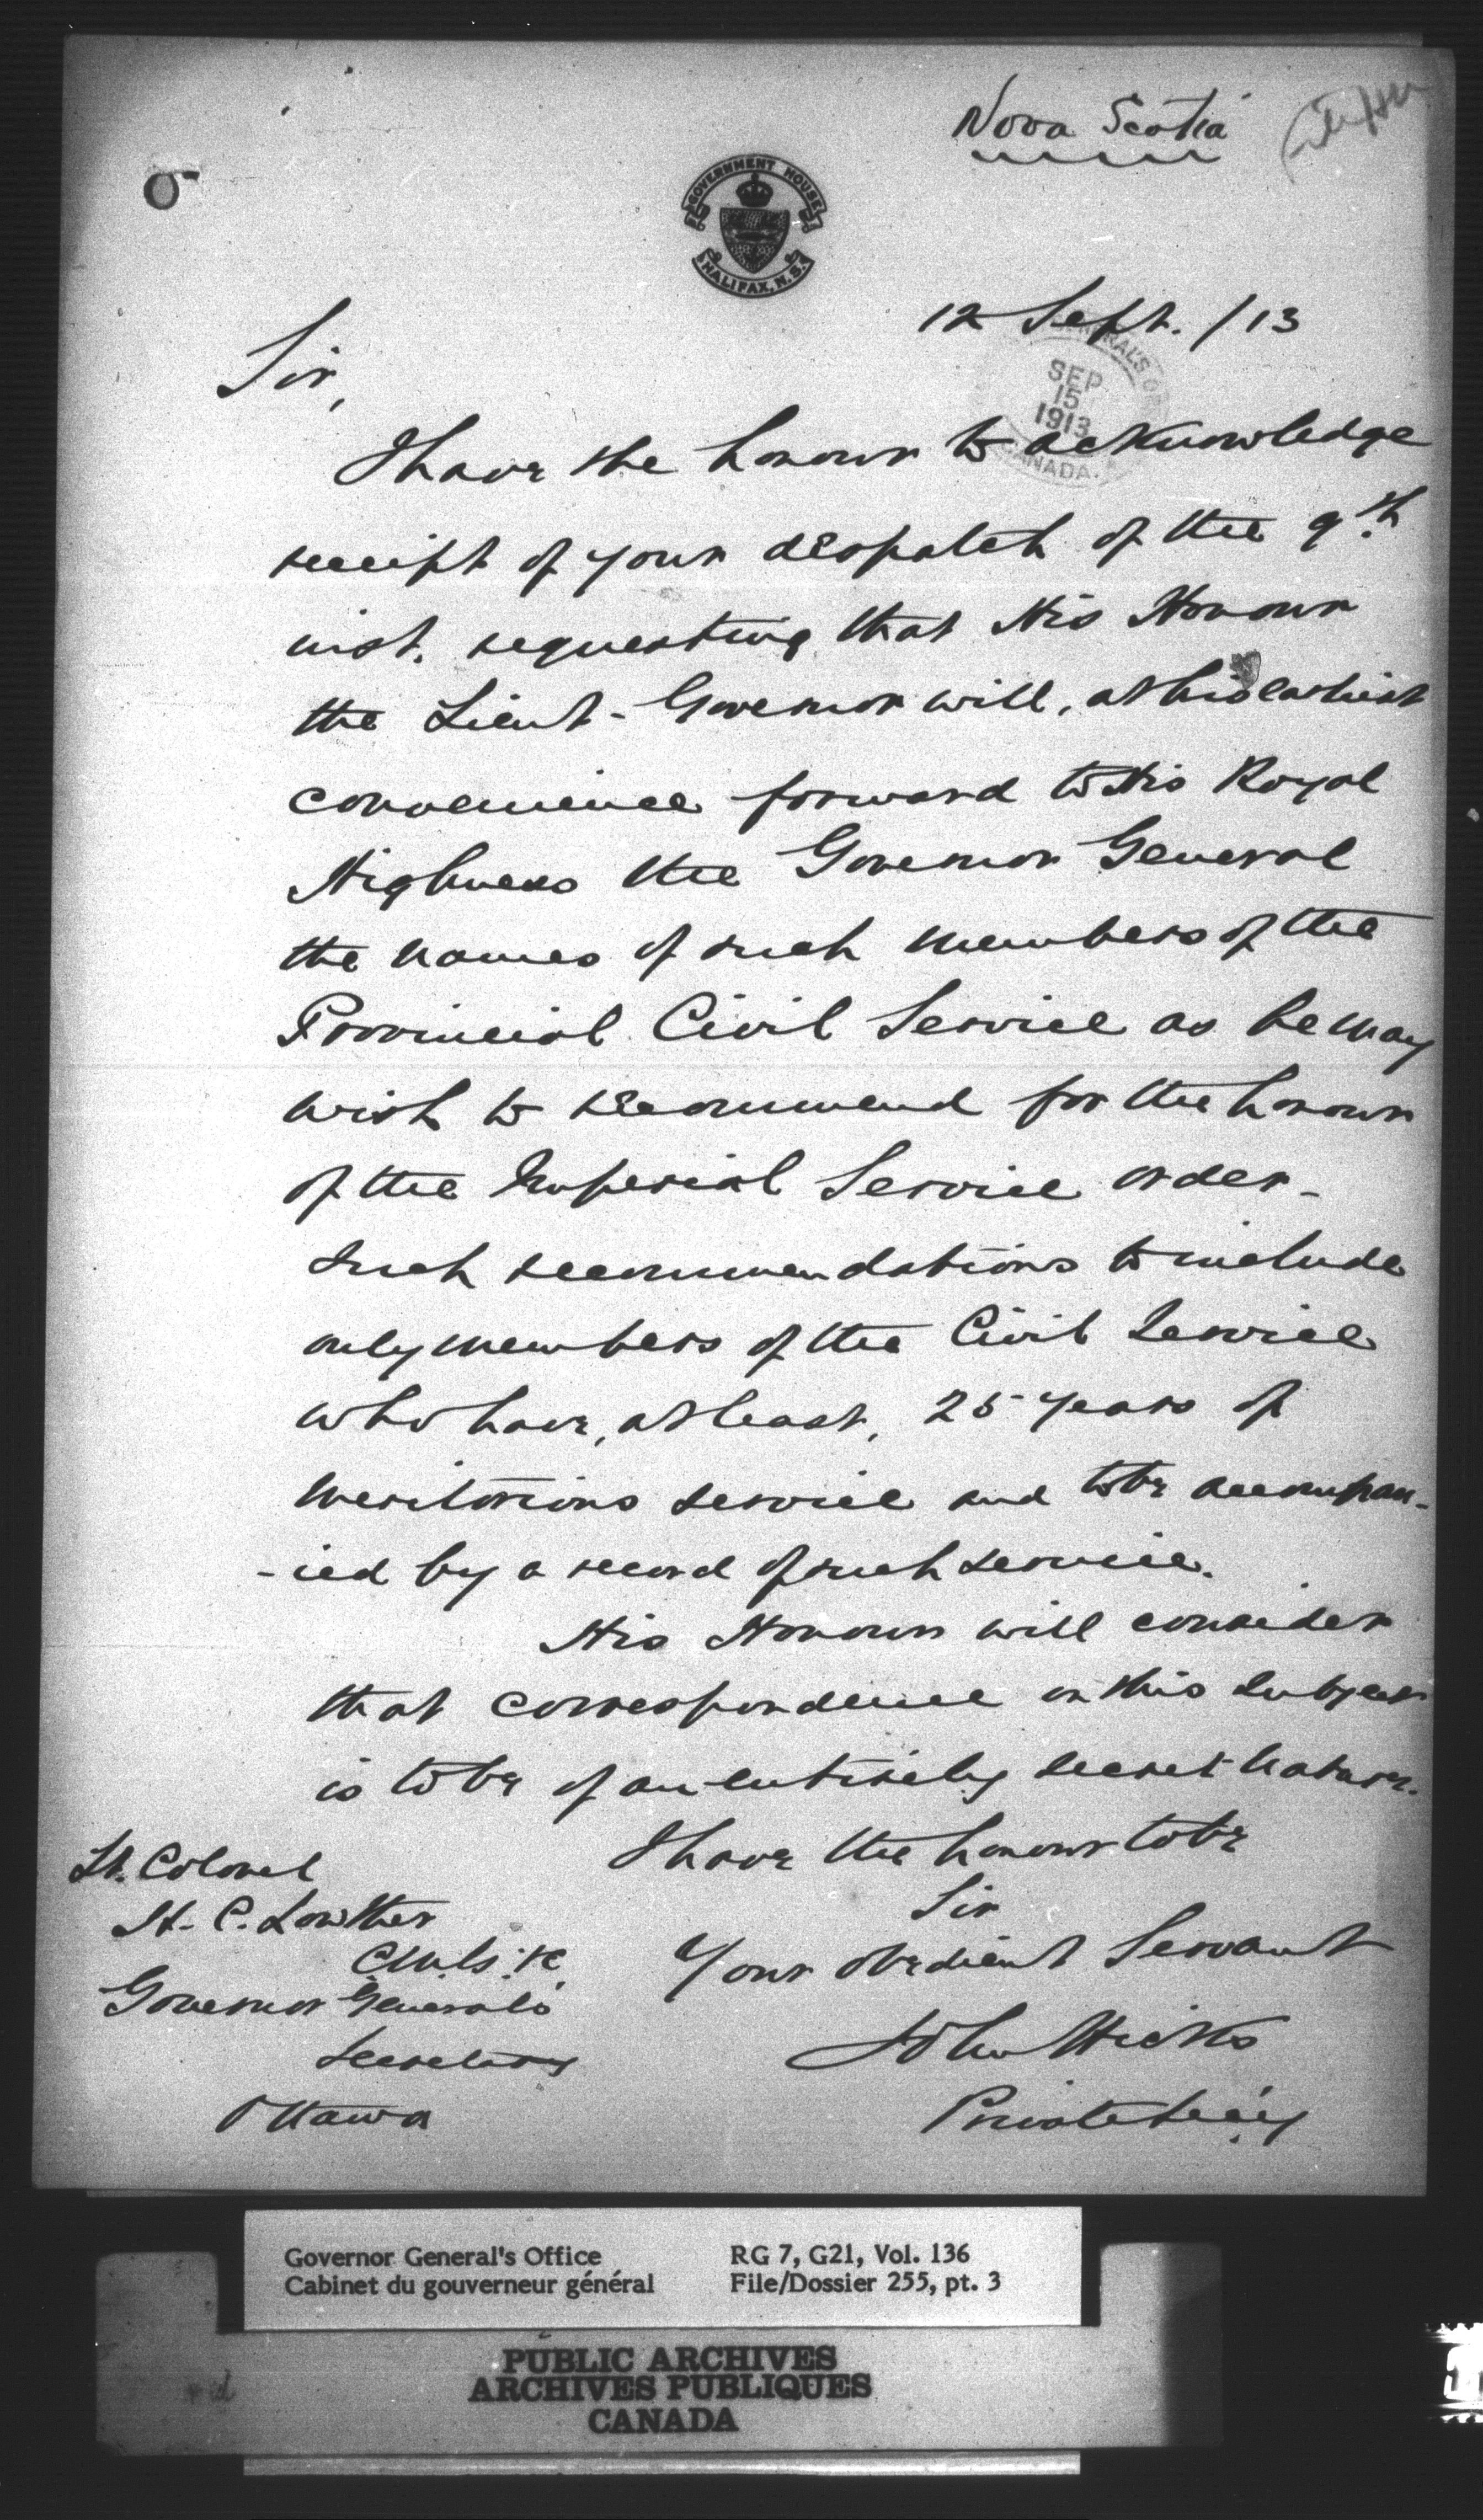 Nova Scotia
GOVERNMENT HOUSE
HALIFAX, N.S.
12 Sept. /13
SEP
15
1913
CANADA.
Sir,
I have the honour to acknowledge
receipt of your despatch of the 9th
inst. requesting that His Honour
the Lieut-Governor will, at his earliest
convenience forward to His Royal
Highness the Governor General
the names of such members of the
Provincial Civil Service as he may
wish to recommend for the honour
of the Imperial Service order -
such recommendations to include
only members of the Civil Service
who have, at least, 25 years of
meritorious service and to be accompan-
-ied by a record of such service.
His Honour will consider
that correspondence on this subject
is to be of an entirely secret nature.
I have the honour to be
Sir
Your obedient Servant
John Hicks
Private Sec'y
Lt. Colonel
H. C. Lowther
Governor General's
Secretary
Ottawa
Governor General's Office
Cabinet du gouverneur général
RG 7, G21, Vol. 136
File/Dossier 255, pt. 3
PUBLIC ARCHIVES
ARCHIVES PUBLIQUES
CANADA